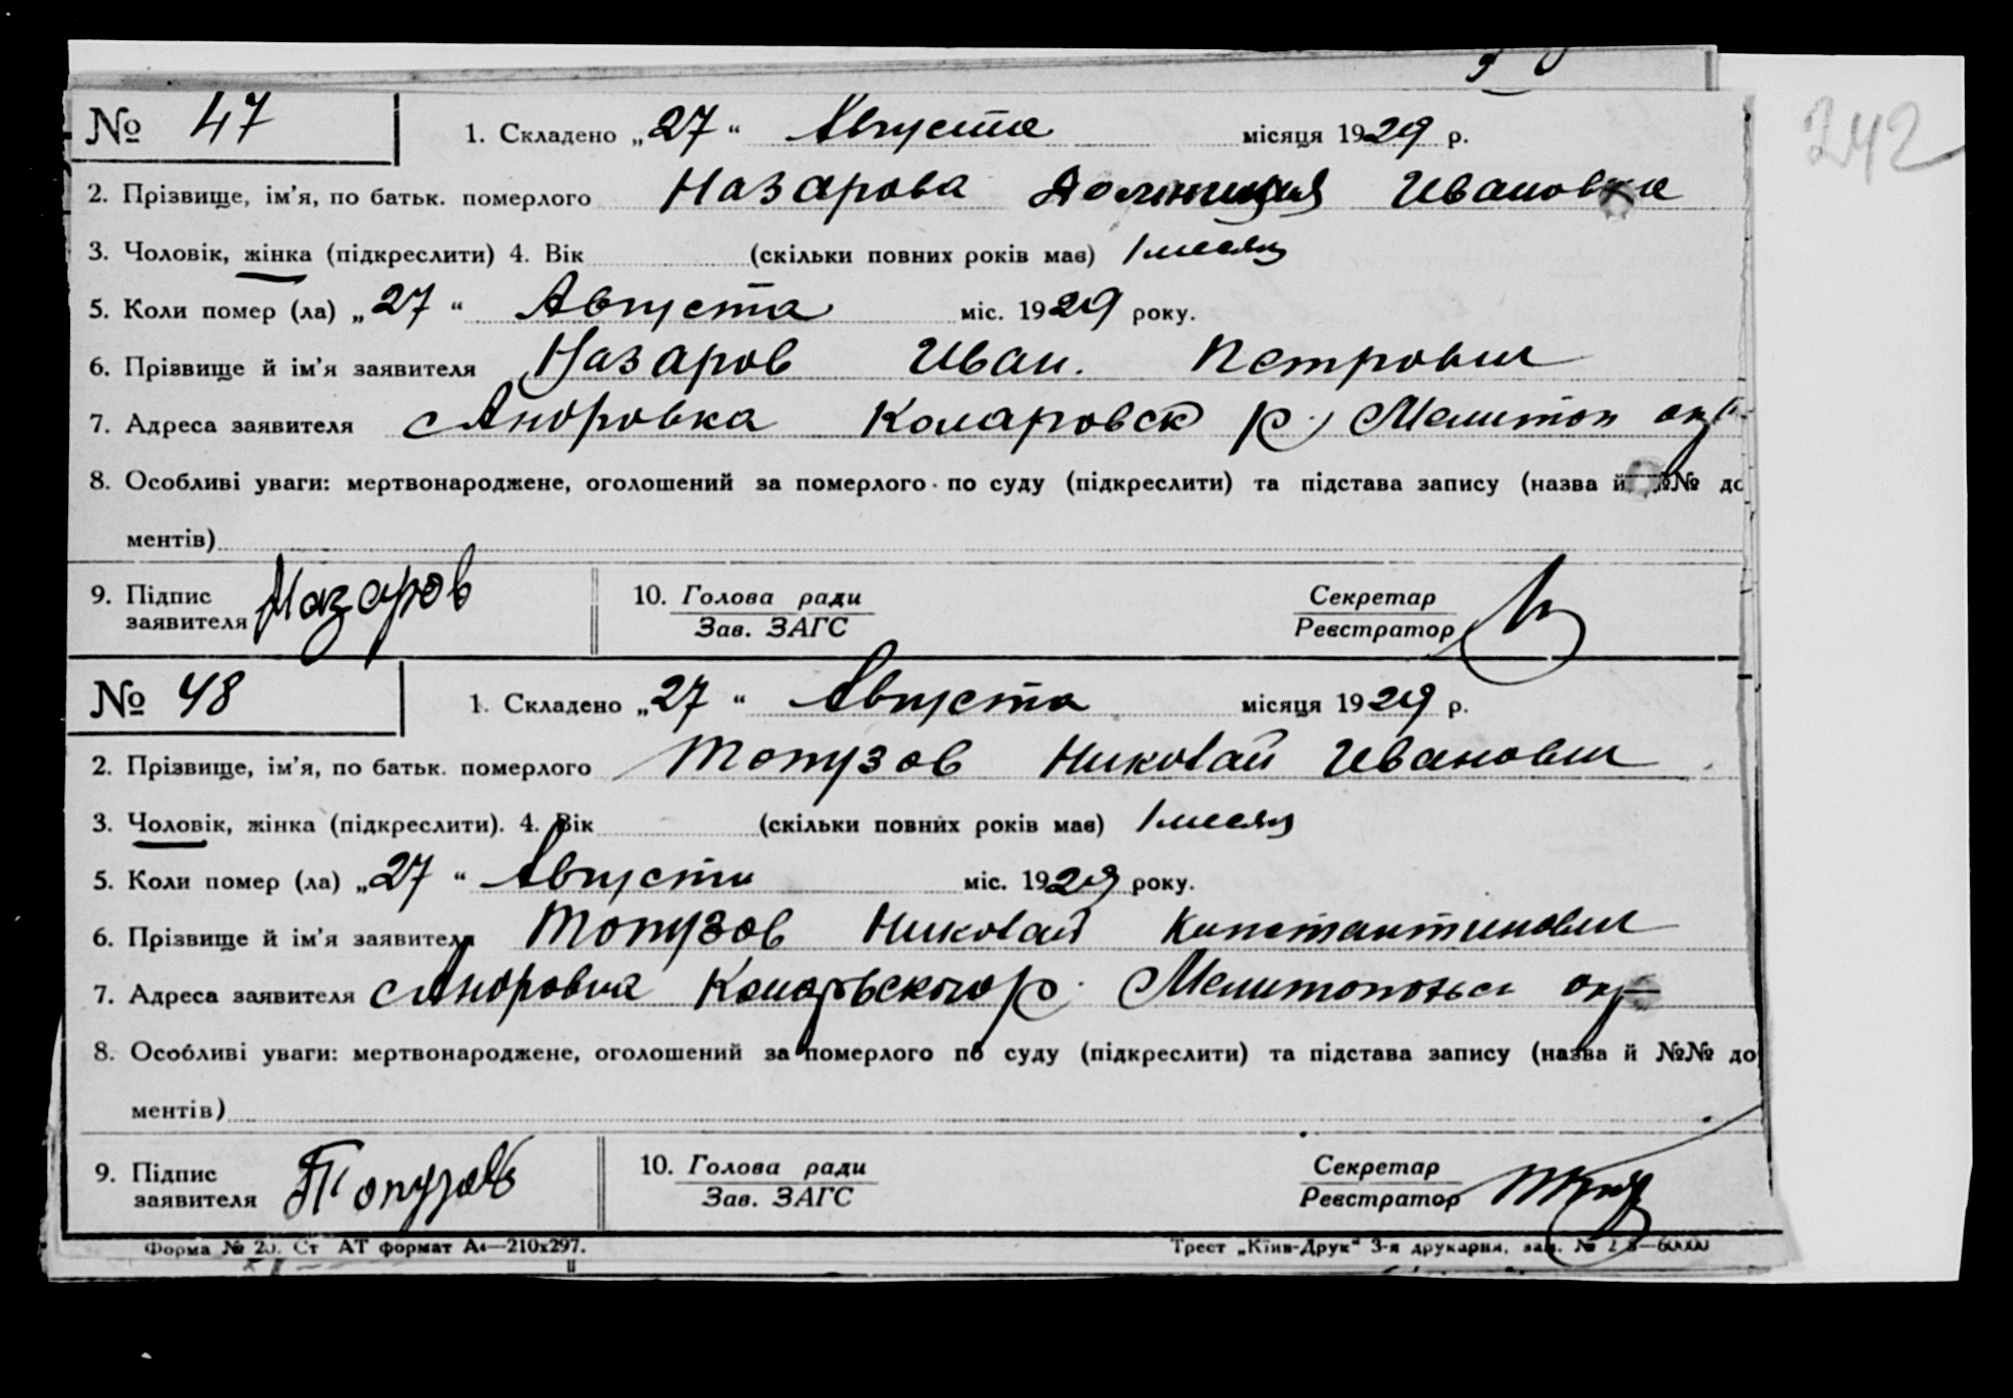 242
№ 47
1. Складено „27“ Августа місяця 1929 р.
2. Прізвище, ім’я, по батьк. померлого Назарова Ивановна
3. Чоловік, жінка (підкреслити) 4. Вік (скільки повних років має) 1 месяц
5. Коли помер (ла) „27“ Августа міс. 1929 року.
6. Прізвище й ім’я заявителя Назаров Иван. Петрович
7. Адреса заявителя с Андровка Коларовск р. Мелитоп окр
8. Особливі уваги: мертвонароджене, оголошений за померлого по суду (підкреслити) та підстава запису (назва й №№ до
ментів)
9. Підпис заявителя Назаров 10. Голова ради Секретар
Зав. ЗАГС Реєстратор
№ 48
1. Складено „27“ Августа місяця 1929 р.
2. Прізвище, ім’я, по батьк. померлого Топузов Николай Иванович
3. Чоловік, жінка (підкреслити). 4. Вік (скільки повних років має) 1 месяц
5. Коли помер (ла) „27“ Августа міс. 1929 року.
6. Прізвище й ім’я заявителя Топузов Николай Константинович
7. Адреса заявителя с Андровка р. окр
8. Особливі уваги: мертвонароджене, оголошений за померлого по суду (підкреслити) та підстава запису (назва й №№ до
ментів)
9. Підпис заявителя Топузов 10. Голова ради Секретар
Зав. ЗАГС Реєстратор
Форма № 20. Ст АТ формат А4—210х297. Трест „Київ-Друк“ 3-я друкарня, зам. №